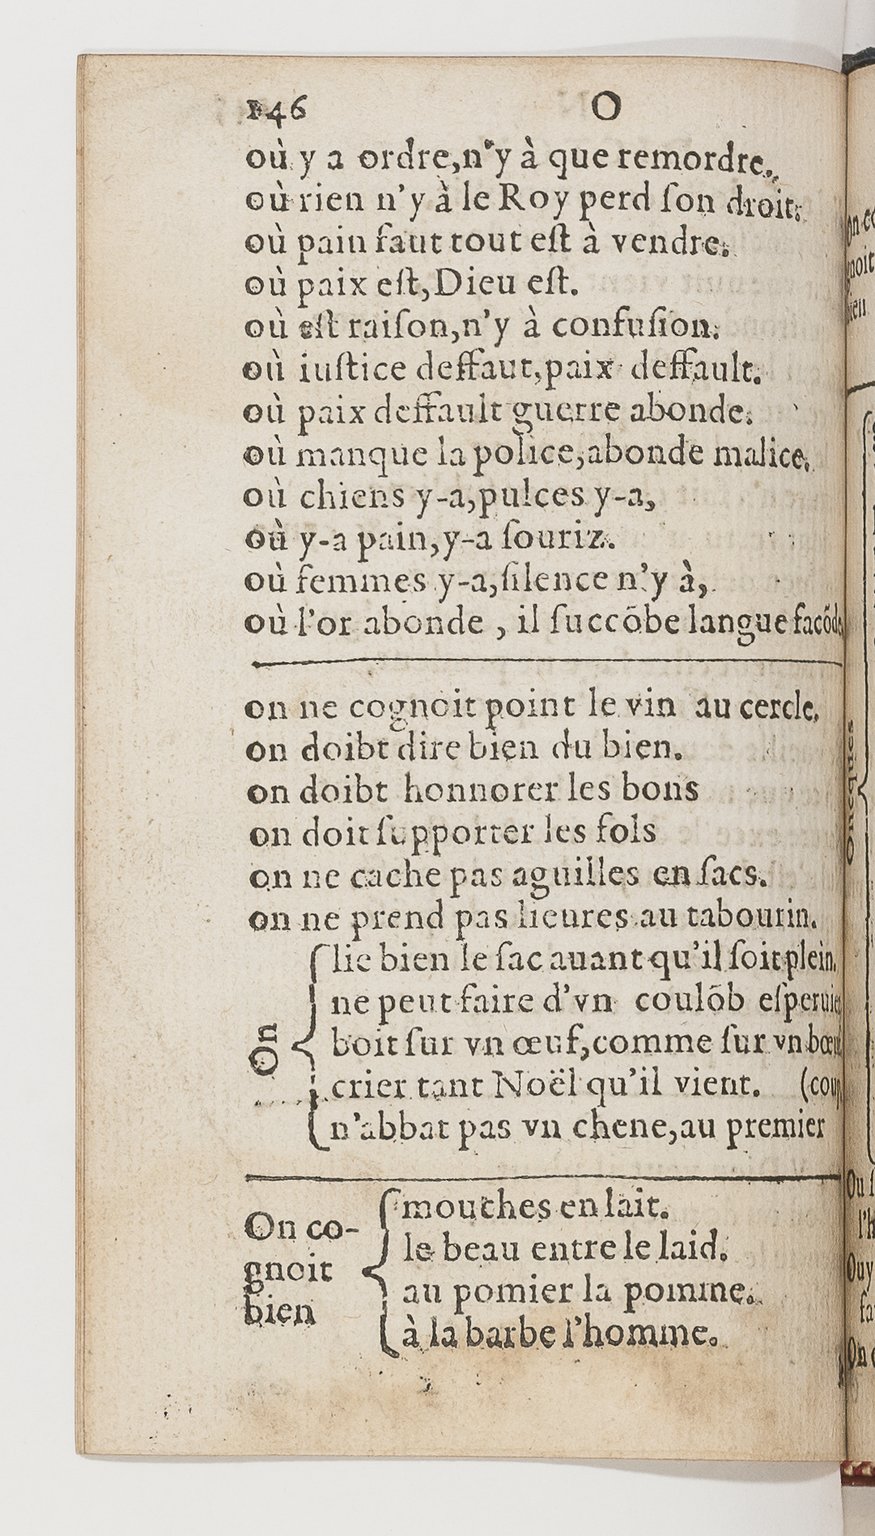 146 O
où y a ordre,n'y à que remordre.
où rien n'y à le Roy perd ſon droit.
où pain faut tout eſt à vendre.
où paix eſt,Dieu eſt.
où eſt raiſon,n'y à confuſion.
où iuſtice deffaut,paix deffault.
où paix deffault guerre abonde.
où manque la police,abonde malice.
où chiens y-a,pulces y-a,
où y-a pain,y-a ſouriz.
où femmes y-a,ſilence n'y à,
où l'or abonde , il ſuccōbe langue facōde
on ne cognoit point le vin au cercle.
on doibt dire bien du bien.
on doibt honnorer les bons
on doit ſupporter les fols
on ne cache pas aguilles en ſacs.
on ne prend pas lieures au tabourin.
On
lie bien le ſac auant qu'il ſoit plein.
ne peut faire d'vn coulōb eſperuie
boit ſur vn œuf,comme ſur vn bœu
crier tant Noël qu'il vient. (coup
n'abbat pas vn chene,au premier
On co-
gnoit
bien
mouches en lait.
le beau entre le laid.
au pomier la pomme.
à la barbe l'homme.